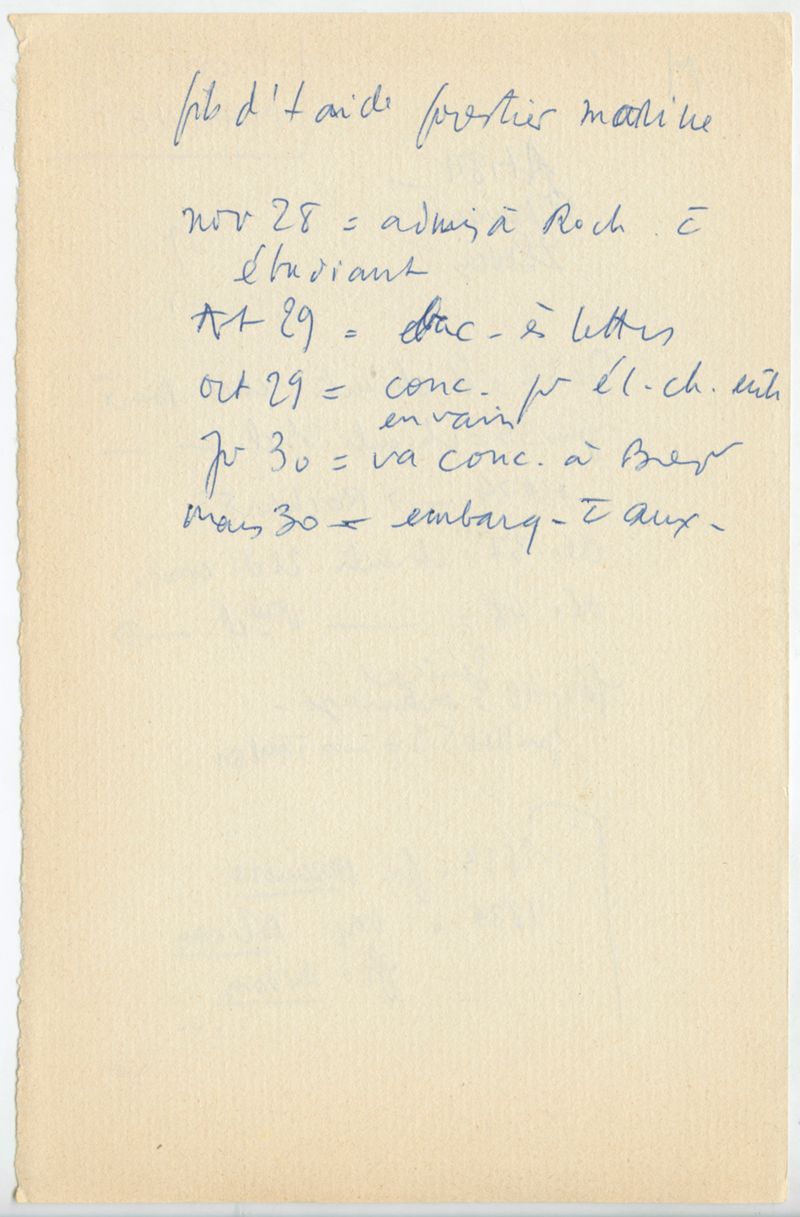 fils d'1 aide forestier marine
nov 28 = admis à Roch. c̄
étudiant
At 29 = bac - ès lettres
oct 29 = conc. pr él. ch.
en vain
Jv 30 = va conc. à Brest
Mars 30 = embarq - c̄ aux -